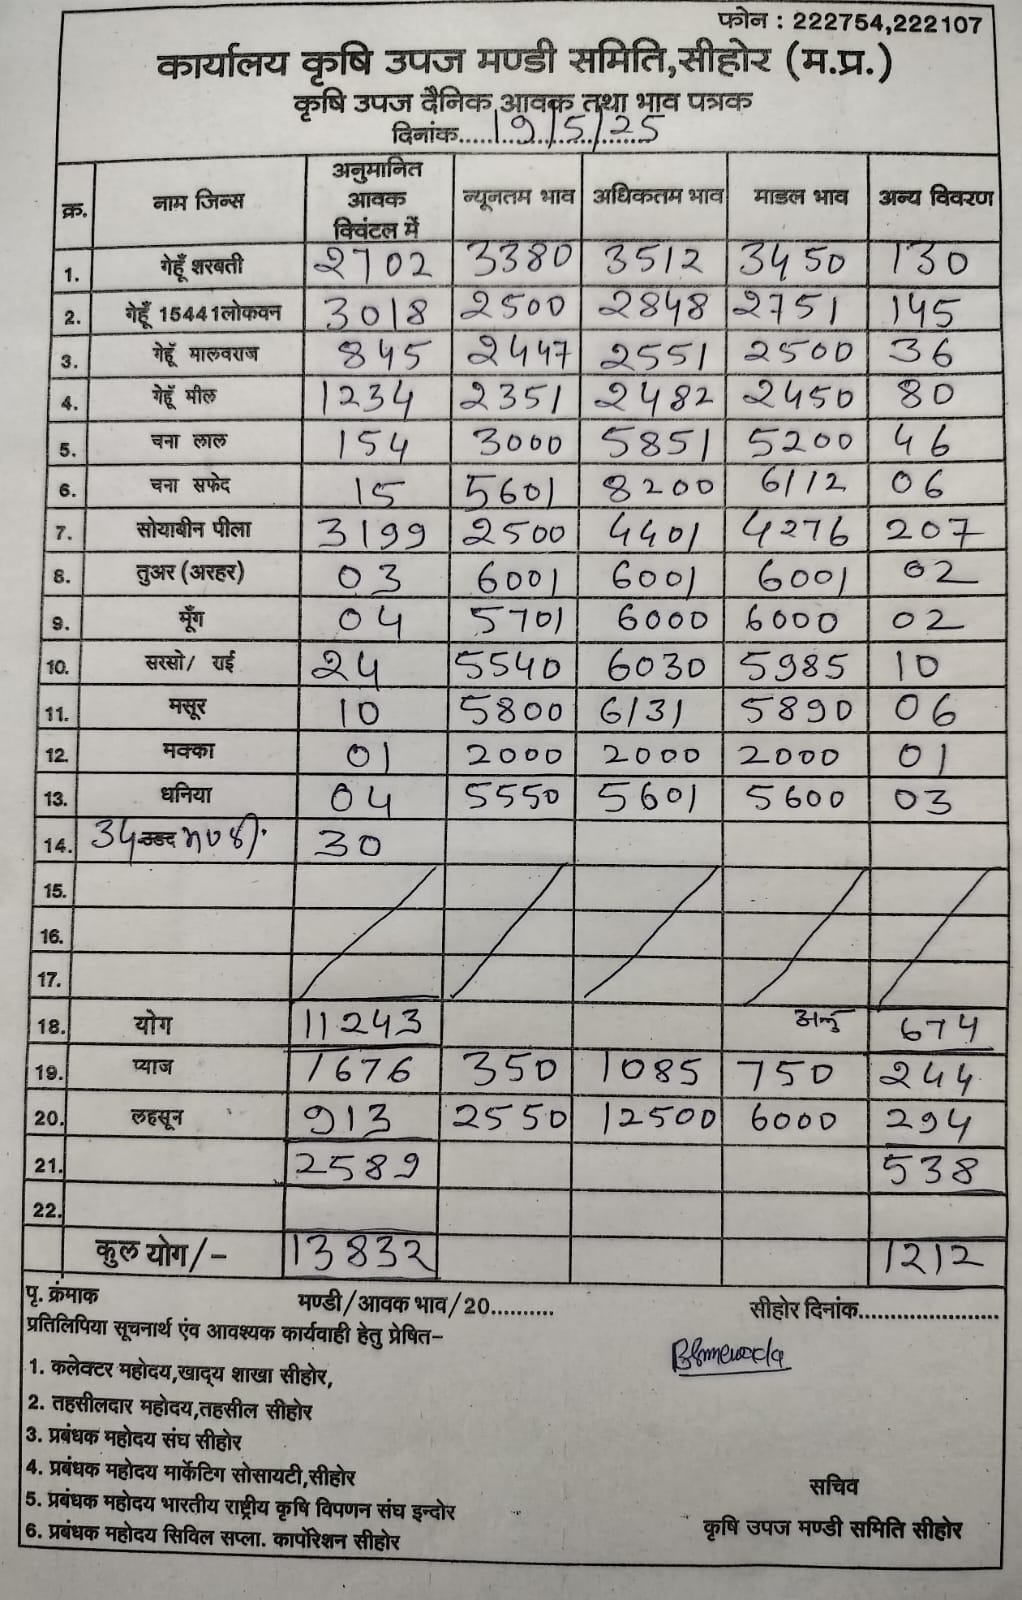 फोन : 222754,222107
कार्यालय कृषि उपज मण्डी समिति,सीहोर (म.प्र.)
कृषि उपज दैनिक आवक तथा भाव पत्रक
दिनांक.....19/5/25
क्र. नाम जिन्स अनुमानित आवक क्विंटल में न्यूनतम भाव अधिकतम भाव माडल भाव अन्य विवरण
1. गेहूँ शरबती 2702 3380 3512 3450 130
2. गेहूँ 15441लोकवन 3018 2500 2848 2751 145
3. गेहूँ मालवराज 845 2447 2551 2500 36
4. गेहूँ मील 1234 2351 2482 2450 80
5. चना लाल 154 3000 5851 5200 46
6. चना सफेद 15 5601 8200 6112 06
7. सोयाबीन पीला 3199 2500 4401 4276 207
8. तुअर (अरहर) 03 6001 6001 6001 02
9. मूँग 04 5701 6000 6000 02
10. सरसो/ राई 24 5540 6030 5985 10
11. मसूर 10 5800 6131 5890 06
12. मक्का 01 2000 2000 2000 01
13. धनिया 04 5550 5601 5600 03
14. 30
15.
16.
17.
18. योग 11243 674
19. प्याज 1676 350 1085 750 244
20. लहसून 913 2550 12500 6000 294
21. 2589 538
22.
कुल योग/- 13832 1212
पृ. क्रंमाक मण्डी/आवक भाव/20.......... सीहोर दिनांक.......................
प्रतिलिपिया सूचनार्थ एंव आवश्यक कार्यवाही हेतु प्रेषित–
1. कलेक्टर महोदय,खाद्य शाखा सीहोर,
2. तहसीलदार महोदय,तहसील सीहोर
3. प्रबंधक महोदय संघ सीहोर
4. प्रबंधक महोदय मार्केटिग सोसायटी,सीहोर
5. प्रबंधक महोदय भारतीय राष्ट्रीय कृषि विपणन संघ इन्दोर
6. प्रबंधक महोदय सिविल सप्ला. कार्पोरेशन सीहोर
सचिव
कृषि उपज मण्डी समिति सीहोर